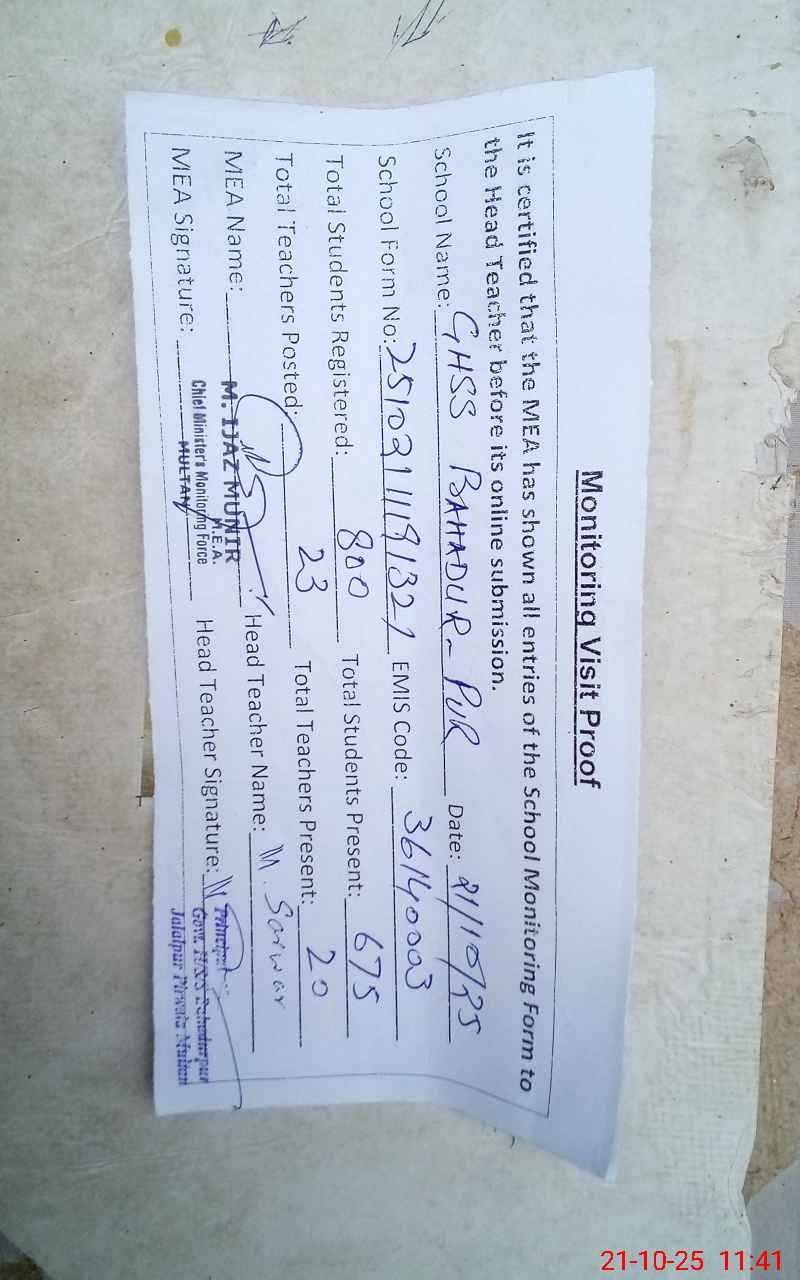 Monitoring Visit Proof
It is certified that the MEA has shown all entries of the School Monitoring Form to
the Head Teacher before its online submission.
School Name: GHSS BAHADUR-PUR Date: 21/10/25
School Form No: EMIS Code: 36140003
Total Students Registered: 800 Total Students Present: 675
Total Teachers Posted: 23 Total Teachers Present: 20
MEA Name: M. IJAZ MUNIR Head Teacher Name: M. Sarwar
M.E.A.
Chief Minister's Monitoring Force
MULTAN
MEA Signature: Head Teacher Signature:
Principal
Govt. HSS Bahadurpur
Jalalpur Pirwala Multan
21-10-25 11:41